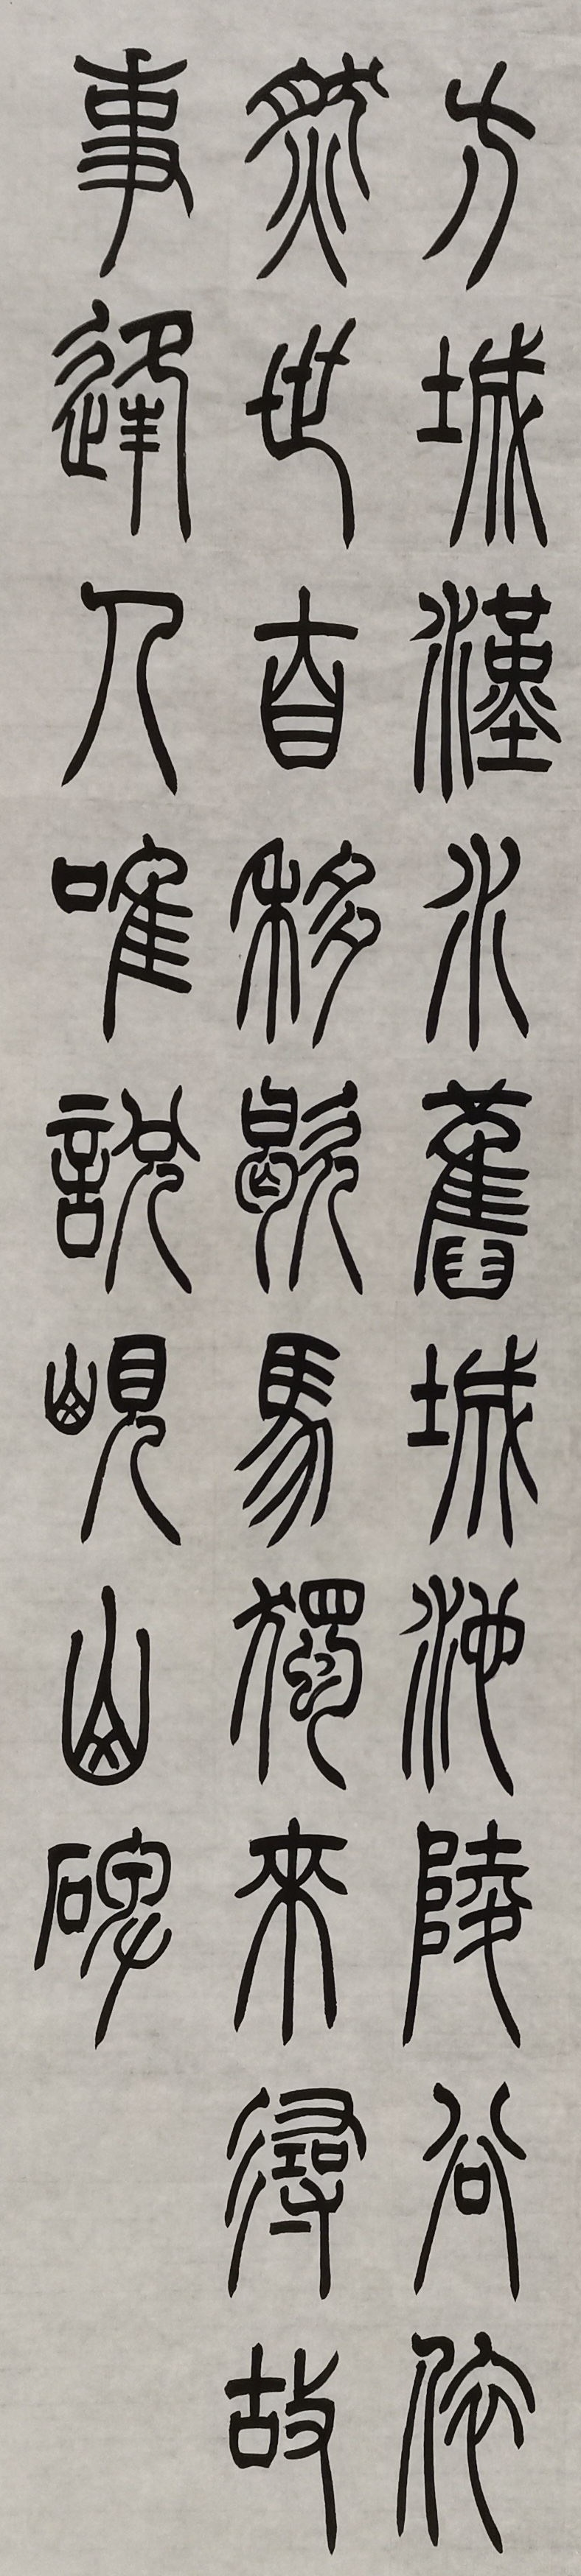 方城漢水舊城池陵谷依
然世自移歇馬獨來尋故
事逢人唯說峴山碑